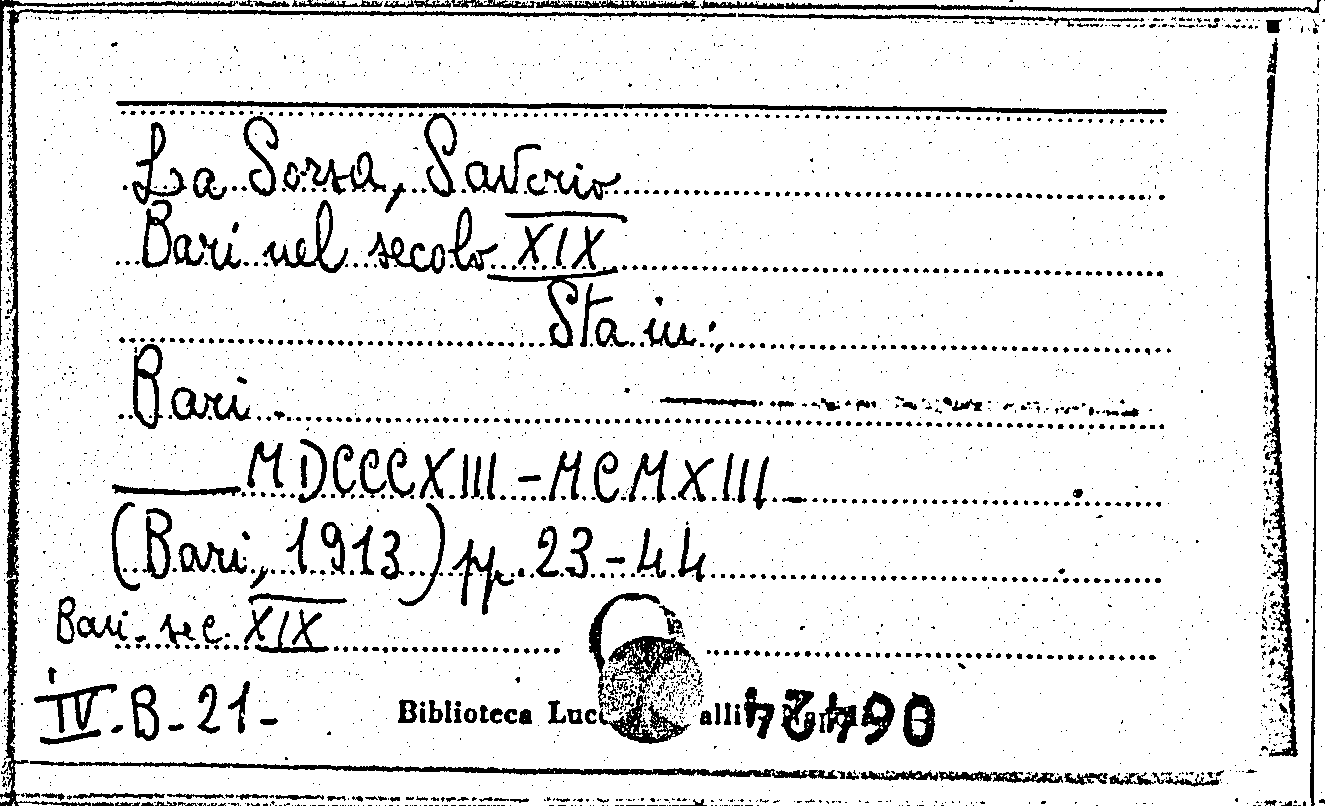 La Sorsa, Saverio
Bari nel secolo XIX
Sta in:
Bari.
MDCCCXIII-MCMXIII.
(Bari, 1913) pp. 23-44
Bari. sec. XIX
IV.B-21-
Biblioteca